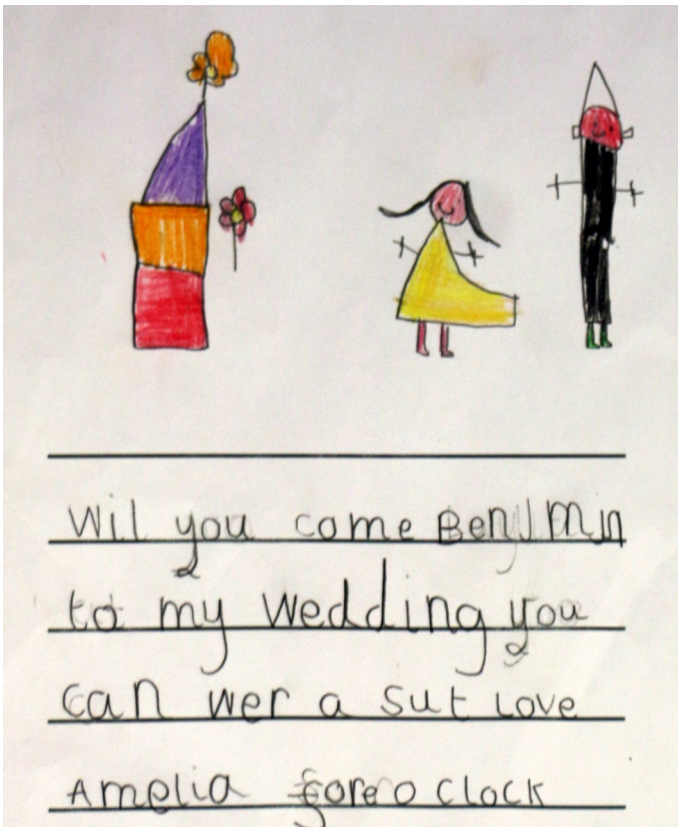 Wil you come Benjmin
to my wedding you
can wer a sut Love
Amelia fore o clock